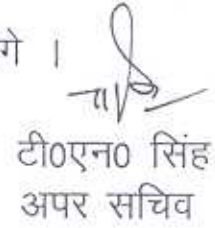 गे ।
टी0एन0 सिंह
अपर सचिव